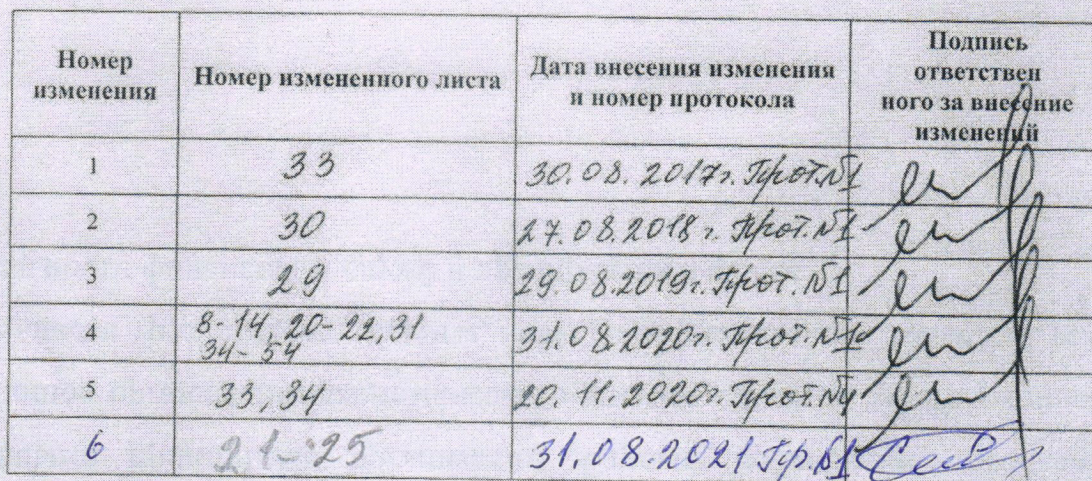 Номер изменения Номер измененного листа Дата внесения изменения и номер протокола Подпись ответствен ного за внесение изменений
1 33 30.08.2017г. Прот.№1
2 30 27.08.2018г. Прот.№1
3 29 29.08.2019г. Прот.№1
4 8-14, 20-22,31 34-54 31.08.2020г. Прот.№1
5 33,34 20.11.2020г. Прот.№4
6 21-25 31.08.2021 Пр.№1